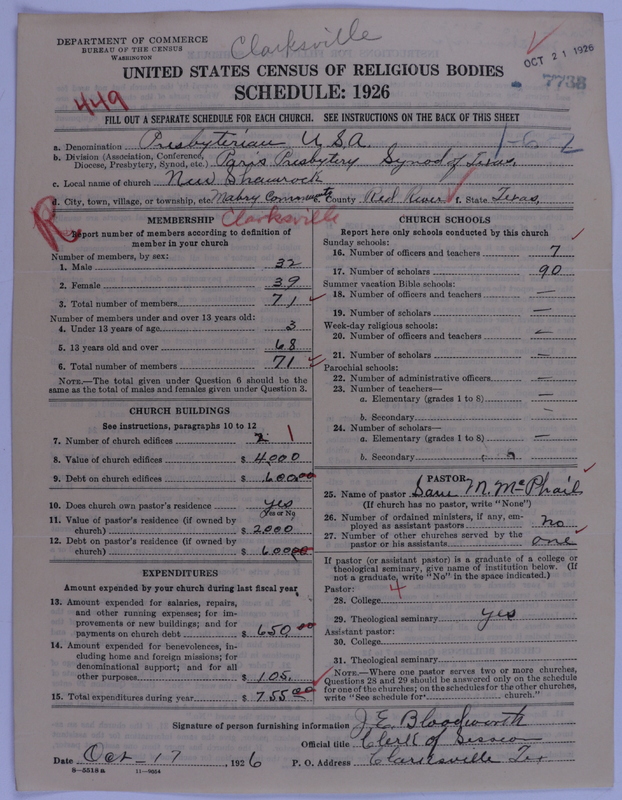 DEPARTMENT OF COMMERCE
BUREAU OF THE CENSUS
WASHINGTON
Clarksville
OCT 21 1926
773B
UNITED STATES CENSUS OF RELIGIOUS BODIES
SCHEDULE: 1926
449
FILL OUT A SEPARATE SCHEDULE FOR EACH CHURCH. SEE INSTRUCTIONS ON THE BACK OF THIS SHEET
a. Denomination Presbyterian U.S.A. 1-6-2
b. Division (Association, Conference, Diocese, Presbytery, Synod, etc.) Paris Presbytery Synod of Texas,
c. Local name of church New Shamrock
d. City, town, village, or township, etc. Mabry Community e. County Red River f. State Texas,
R
Clarksville
MEMBERSHIP
Report number of members according to definition of
member in your church
Number of members, by sex:
1. Male 32
2. Female 39
3. Total number of members 71
Number of members under and over 13 years old:
4. Under 13 years of age 3
5. 13 years old and over 68
6. Total number of members 71
NOTE.—The total given under Question 6 should be the
same as the total of males and females given under Question 3.
CHURCH BUILDINGS
See instructions, paragraphs 10 to 12
7. Number of church edifices 2 1
8. Value of church edifices $ 4,000
9. Debt on church edifices $ 600.00
10. Does church own pastor's residence yes
(Yes or No)
11. Value of pastor's residence (if owned by
church) $ 2,000
12. Debt on pastor's residence (if owned by
church) $ 600.00
EXPENDITURES
Amount expended by your church during last fiscal year
13. Amount expended for salaries, repairs,
and other running expenses; for im-
provements or new buildings; and for
payments on church debt $ 650.00
14. Amount expended for benevolences, in-
cluding home and foreign missions; for
denominational support; and for all
other purposes $ 105.
15. Total expenditures during year $ 755.00
CHURCH SCHOOLS
Report here only schools conducted by this church
Sunday schools:
16. Number of officers and teachers 7
17. Number of scholars 90
Summer vacation Bible schools:
18. Number of officers and teachers —
19. Number of scholars —
Week-day religious schools:
20. Number of officers and teachers —
21. Number of scholars —
Parochial schools:
22. Number of administrative officers —
23. Number of teachers—
a. Elementary (grades 1 to 8) —
b. Secondary —
24. Number of scholars—
a. Elementary (grades 1 to 8) —
b. Secondary
PASTOR
25. Name of pastor Sam M. McPhail
(If church has no pastor, write "None")
26. Number of ordained ministers, if any, em-
ployed as assistant pastors no
27. Number of other churches served by the
pastor or his assistants one
If pastor (or assistant pastor) is a graduate of a college or
theological seminary, give name of institution below. (If
not a graduate, write "No" in the space indicated.)
Pastor: 4
28. College
29. Theological seminary yes
Assistant pastor:
30. College
31. Theological seminary
NOTE.—Where one pastor serves two or more churches,
Questions 28 and 29 should be answered only on the schedule
for one of the churches; on the schedules for the other churches,
write "See schedule for church."
Signature of person furnishing information J. E. Bloodworth
Official title Clerk of Session
Date Oct - 17, 1926 P. O. Address Clarksville Tex
8—5518 a 11—9064